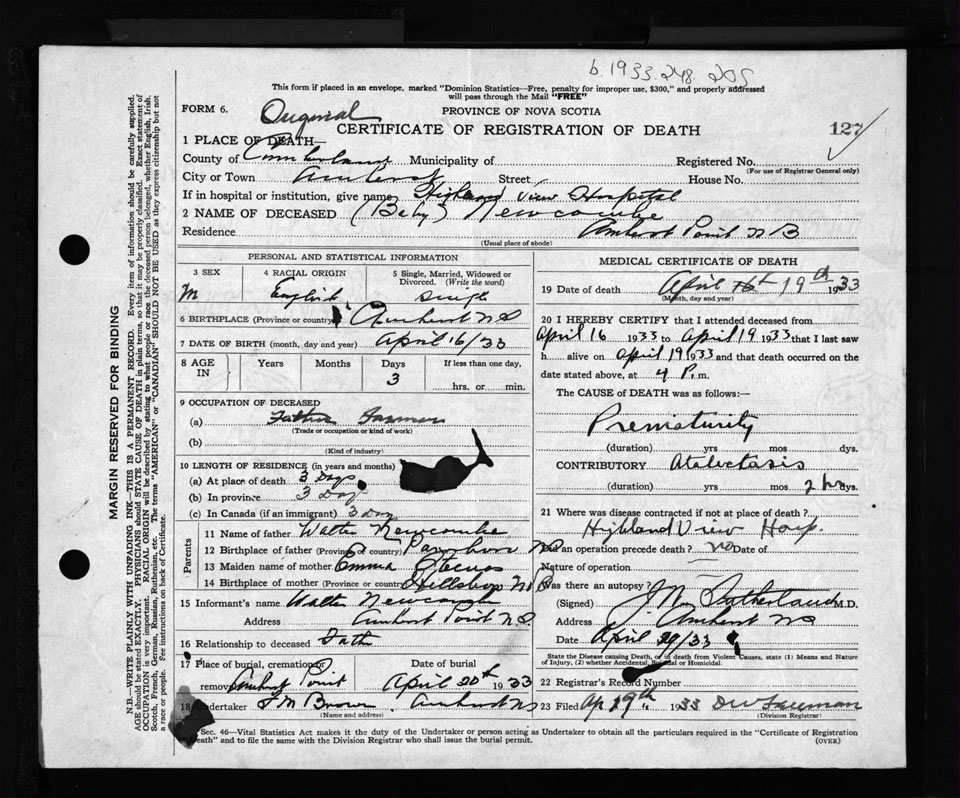 b. 1933. 248 205
This form if placed in an envelope, marked "Dominion Statistics—Free, penalty for improper use, $300," and properly addressed
will pass through the Mail "FREE"
FORM 6. Original
PROVINCE OF NOVA SCOTIA
CERTIFICATE OF REGISTRATION OF DEATH
127
1 PLACE OF DEATH—
County of Cumberland Municipality of Registered No.
(For use of Registrar General only)
City or Town Amherst Street House No.
If in hospital or institution, give name Highland View Hospital
2 NAME OF DECEASED (Baby) Newcombe
Residence Amherst Point N B
(Usual place of abode)
PERSONAL AND STATISTICAL INFORMATION
3 SEX 4 RACIAL ORIGIN 5 Single, Married, Widowed or Divorced. (Write the word)
M English single
6 BIRTHPLACE (Province or country) Amherst N S
7 DATE OF BIRTH (month, day and year) April 16/33
8 AGE IN Years Months Days If less than one day,
3 hrs. or min.
9 OCCUPATION OF DECEASED
(a) Father Farmer
(Trade or occupation or kind of work)
(b)
(Kind of industry)
10 LENGTH OF RESIDENCE (in years and months)
(a) At place of death 3 Days
(b) In province 3 Day
(c) In Canada (if an immigrant) 3 Day
Parents
11 Name of father Walter Newcombe
12 Birthplace of father (Province or country) Parrsboro N S
13 Maiden name of mother Emma
14 Birthplace of mother (Province or country) Hillsboro N B
15 Informant's name Walter Newcomb
Address Amherst Point N S
16 Relationship to deceased Fath
17 Place of burial, cremation or Date of burial
removal Amherst Point April 20th 1933
18 Undertaker F M Brown Amherst N S
(Name and address)
MEDICAL CERTIFICATE OF DEATH
19 Date of death April 19th 1933
(Month, day and year)
20 I HEREBY CERTIFY that I attended deceased from
April 16 1933 to April 19 1933 that I last saw
h alive on April 19 1933 and that death occurred on
date stated above, at 4 P. m.
The CAUSE OF DEATH was as follows:—
Prematurity
(duration) yrs mos. dys.
CONTRIBUTORY Atalectasis
(duration) yrs mos. 2 hrs dys.
21 Where was disease contracted if not at place of death?
Highland View Hosp.
Did an operation precede death? no Date of
Nature of operation
Was there an autopsy?
(Signed) J M Sutherland M.D.
Address Amherst N S
Date April 29/33
State the Disease causing Death, or in death from Violent Causes, state (1) Means and Nature of Injury, (2) whether Accidental, Suicidal or Homicidal.
22 Registrar's Record Number
23 Filed Ap 19th 1933 D W Freeman
(Division Registrar)
Sec. 46—Vital Statistics Act makes it the duty of the Undertaker or person acting as Undertaker to obtain all the particulars required in the "Certificate of Registration
of Death" and to file the same with the Division Registrar who shall issue the burial permit.
(OVER)
MARGIN RESERVED FOR BINDING
N.B.—WRITE PLAINLY WITH UNFADING INK—THIS IS A PERMANENT RECORD. Every item of information should be carefully supplied.
AGE should be stated EXACTLY. PHYSICIANS should STATE CAUSE OF DEATH in plain terms, so that it may be properly classified. Exact statement of
OCCUPATION is very important. RACIAL ORIGIN will be described by stating to what people or race the deceased person belonged, whether English, Irish,
Scotch, French, German, Russian, Ruthenian, etc. The terms "AMERICAN" or "CANADIAN" SHOULD NOT BE USED as they express citizenship but not
a race or people. See instructions on back of Certificate.